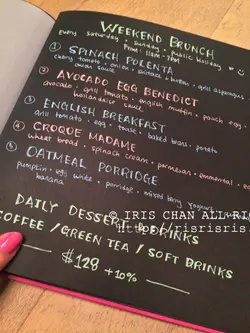 WEEKEND BRUNCH
Every Saturday . Sunday . public holiday
From 11am-3pm
① SPINACH POLENTA
cherry tomato . onion . spinach . button . grill asparagus
onion sauce
② AVOCADO EGG BENEDICT
avocado . grill tomato . english muffin . poach egg
hollandaise sauce
③ ENGLISH BREAKFAST
grill tomato . egg . toast . baked beans . potato
④ CROQUE MADAME
wheat bread . spinach cream . parmesan . emmental
⑤ OATMEAL PORRIDGE
pumpkin . egg white . porridge . mixed berry yoghurt
banana
© IRIS CHAN ALL RI
http://risrisris.
DAILY DESSERT & DRINKS
COFFEE / GREEN TEA / SOFT DRINKS
$128 +10%